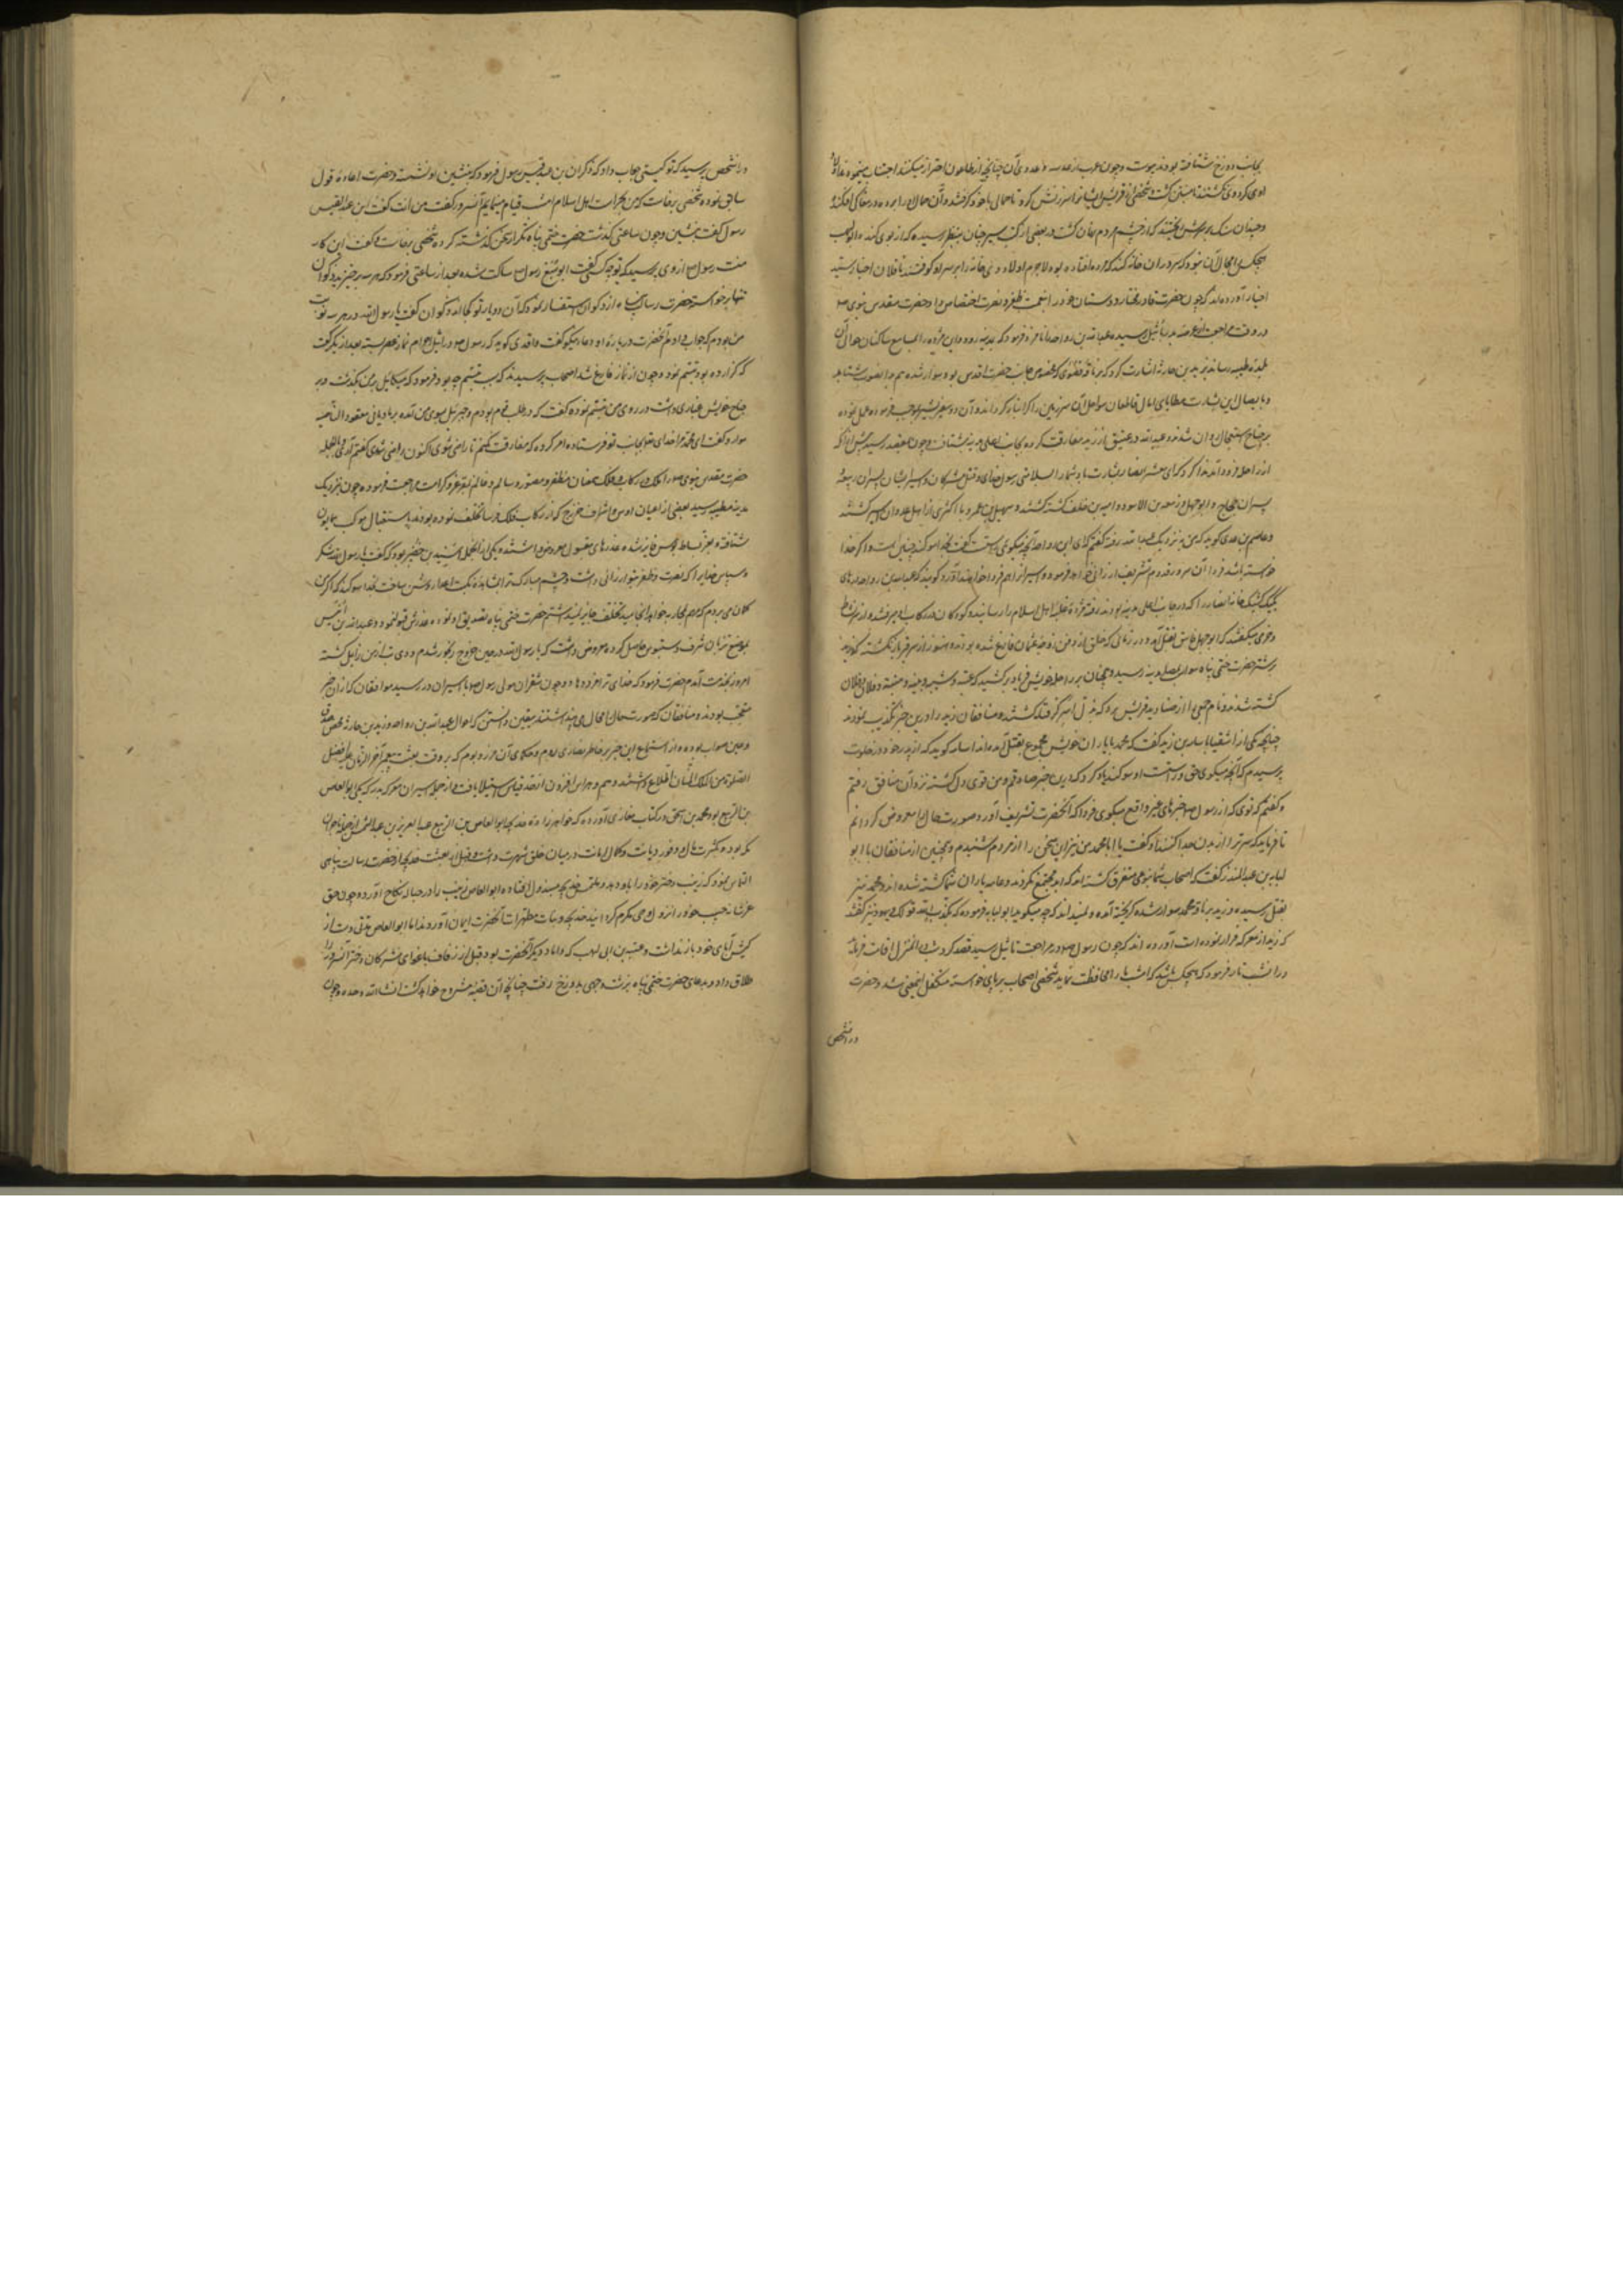 بجانب دوزخ شتافته بودند چون عرب از عدسه و عدوی آن چنانچه از طاعون احتراز میکنند اجتناب مینمودند
وچندان سنگ بر ریختند که از چشم مردم پنهان گشت و در بعضی از کتب سیر چنان بنظر رسیده که از بوی گند ابولهب
هیچکس را مجال آن نبود که سر در آن خانه کند که مرده افتاده بود لاجرم اولاد وی خانه را بر سر او کوفتند ناقلان اخبار
اخیار آورده اند که چون حضرت قادر مختار دوستان خود را بنعمت ظفر و نصرت اختصاص داد حضرت مقدس نبوی صم
در وقت مراجعت از غزوه بدر باثیل رسیده عبدالله بن رواحه را نامزد فرمود که بمدینه رود و این مژده را بمسامع ساکنان حوالی آن
بلده طیبه رساند و زید بن حارثه اشارت کرد که بر ناقه قصوی که مخصوص بجناب حضرت اقدس بود سوار شده هم بدان صوب شتابد
بر جناح استعجال روان شدند و عبدالله در عقیق از زید مفارقت کرده بجانب اعلی مدینه شتافت و چون بمقصد رسید پیش از آنکه
از راحله فرود آید ندا کرد که ای معشر انصار بشارت باد شما را بسلامتی رسول خدای و قتل مشرکان و اسیر ایشان پسران ربیعه
پسران حجاج و ابوجهل و زمعه بن الاسود و امیه بن خلف کشته گشتند و سهیل بن عمرو با اکثری از اهل عدوان اسیر گشتند
وعاصم بن عدی گوید که من نزدیک عبدالله رفته گفتم که ای ابن رواحه آنچه میگوئی راست است گفت بخدا سوگند چنین است و اگر خدا
خواسته باشد فردا آن سرور قدوم تشریف ارزانی خواهد فرمود و اسیران را همراه خواهند آورد گویند که عبدالله بن رواحه در های
یک یک خانه انصار را که در جانب اعلی مدینه بودند رفته مژده غلبه اهل اسلام را رسانید و کودکان در رکاب او میرفتند و از نشاط
وخرمی میگفتند که ابوجهل فاسق بقتل آمد و در زمانی که خلق از دفن رقیه عثمان فارغ شده بودند و هنوز از سر قبر باز نگشته که زید
بر شتر حضرت ختمی پناه سوار بمصلی مدینه رسید و همچنان بر راحله خویش فریاد بر کشید که عتبه و شیبه و منبه و فلان و فلان
کشته شدند و نام جمعی را از صنادید قریش برد که بذل اسر گرفتار گشتند و منافقان زید را در این خبر تکذیب نمودند
چنانچه یکی از اشقیا با اسامه بن زید گفت که محمد با یاران خویش مجموع بقتل آمده اند اسامه گوید که از پدر خود در خلوت
پرسیدم که آنچه میگوئی حق و راست است او سوگند یاد کرد که این خبر صادقم و من قوی دل گشته نزد آن منافق رفتم
وگفتم که توئی که از رسول صم خبرهای غیر واقع میگوئی فردا که آنحضرت تشریف آورد صورت حال را معروض گردانم
تا فرماید که سر ترا از بدن جدا کنند او گفت یا ابا محمد من نیز این سخن را از مردم شنیدم و همچنین از منافقان با ابو
لبابه بن عبدالمنذر گفت که اصحاب شما بنوعی متفرق گشته اند که ابدا مجتمع نگردند و عامه یاران شما کشته شده اند و محمد نیز
بقتل رسیده و زید بر ناقه محمد سوار شده گریخته آمده و نمیداند که چه میگوید ابو لبابه فرمود که یکذب الله قولک و یهود نیز گفتند
که زید از معرکه فرار نموده است آورده اند که چون رسول صم در مراجعت تا باثیل رسید قصد کرد که شب در آن منزل اقامت فرماید
در آن شب تار فرمود که هیچکس باشد که امشب ما را محافظت نماید شخصی از اصحاب بر پای خواسته متکفل این معنی شد و حضرت
در آن شخص
در آن شخص پرسید که تو کیستی جواب داد که ذکوان بن عبد قیس رسول فرمود که بنشین او نشست و حضرت اعاده قول
سابق نموده شخصی برخاست که من بحراست اهل اسلام امشب قیام مینمایم آنسرور گفت من انت گفت ابن عبد القیس
رسول گفت بنشین و چون ساعتی گذشت حضرت ختمی پناه تکرار سخن گذشته کرده شخصی برخاست و گفت این کار
منست رسول صم از وی پرسید که تو چه کسی گفت ابو سبع رسول صم ساکت شده بعد از ساعتی فرمود که هر سه برخیزید ذکوان
تنها برخواست حضرت رسالت پناه از ذکوان استفسار نمود که آن دو یار تو کجا اند ذکوان گفت یا رسول الله در هر سه نوبت
من بودم که جواب دادم آنحضرت در باره او دعای نیکو گفت واقدی گوید که رسول صم در اثیل احرام نماز عصر بسته بعد از یک رکعت
که گزارده بود تبسم نمود و چون از نماز فارغ شد اصحاب پرسیدند که سبب تبسم چه بود فرمود که میکائیل بر من بگذشت و بر
جناح خویش غباری داشت در روی من تبسم نموده گفت که در طلب قوم بودم و جبرئیل بسوی من آمده بر مادیانی معقود الناصیه
سوار و گفت ای محمد مرا خدای تعالی بجانب تو فرستاده امر کرده که مفارقت نکنم تا راضی شوی اکنون راضی شدی گفتم آری القصه
حضرت مقدس نبوی صم مظفر و منصور و سالم و غانم بفر عز و کرامت مراجعت فرموده چون نزدیک
مدینه طیبه رسید بعضی از اعیان اوس و اشراف خزرج که از رکاب فلک فرسا تخلف نموده بودند باستقبال موکب همایون
شتافته بعز بساط بوس فایز شده عذرهای مقبول معروض داشتند یکی از آنجمله اسید بن حضیر بود که گفت یا رسول الله شکر
وسپاس خدایرا که نصرت و ظفر بتو ارزانی داشت و چشم مبارک ترا روشن ساخت بخدا سوگند که اگر من
گمان می بردم که مهم بمحاربه خواهد انجامید تخلف جایز نمیداشتم حضرت ختمی پناه تصدیق او نموده عذرش قبول نمود و عبدالله بن انیس
بموضع تربان شرف دستبوس حاصل کرده معروض داشت که یا رسول الله در حین خروج رنجور شدم و دی تب از من زایل گشته
امروز بخدمت آمدم حضرت فرمود که خدای ترا مزد دهاد و چون شقران مولی رسول صم با اسیران در رسید موافقان که از آن خبر
متعجب بودند و منافقان که صورت حال را محال می پنداشتند بیقین دانستند که اقوال عبدالله بن رواحه و زید بن حارثه محض صدق
وعین صواب بوده و از استماع این خبر بر خاطر نصاری روم و حکام آن مرز و بوم که بر وقت بعثت پیغمبر آخر الزمان علیه افضل
الصلوة من الملک المنان اطلاع داشتند وهم و هراس افزون از حد قیاس استیلا یافت و از جمله اسیران معرکه بدر یکی ابوالعاص
بن الربیع بود محمد بن اسحق در کتاب مغازی آورده که خواهر زاده خدیجه ابوالعاص بن الربیع عبدالعزی بن عبدالشمس از جمله تاجران
مکه بود و بکثرت مال و وفور دیانت و کمال امانت در میان خلق شهرت داشت و قبل از بعثت خدیجه از حضرت رسالت پناهی
التماس نمود که زینب دختر خود را باو دهد و ملتمس خدیجه مبذول افتاده ابوالعاص زینب را در حباله نکاح آورد و چون حق
عزشانه حبیب خود را مکرم گردانید خدیجه و بنات مطهرات آنحضرت ایمان آوردند اما ابوالعاص دست از
کیش آبای خود باز نداشت و عتبه بن ابی لهب که داماد دیگر آنحضرت بود قبل از زفاف باغوای مشرکان دختر آنسرور را
طلاق داد و بدعای حضرت ختمی پناه بزشت وجهی بدوزخ رفت چنانچه آن قضیه مشروح خواهد گشت انشاء الله وحده و چون